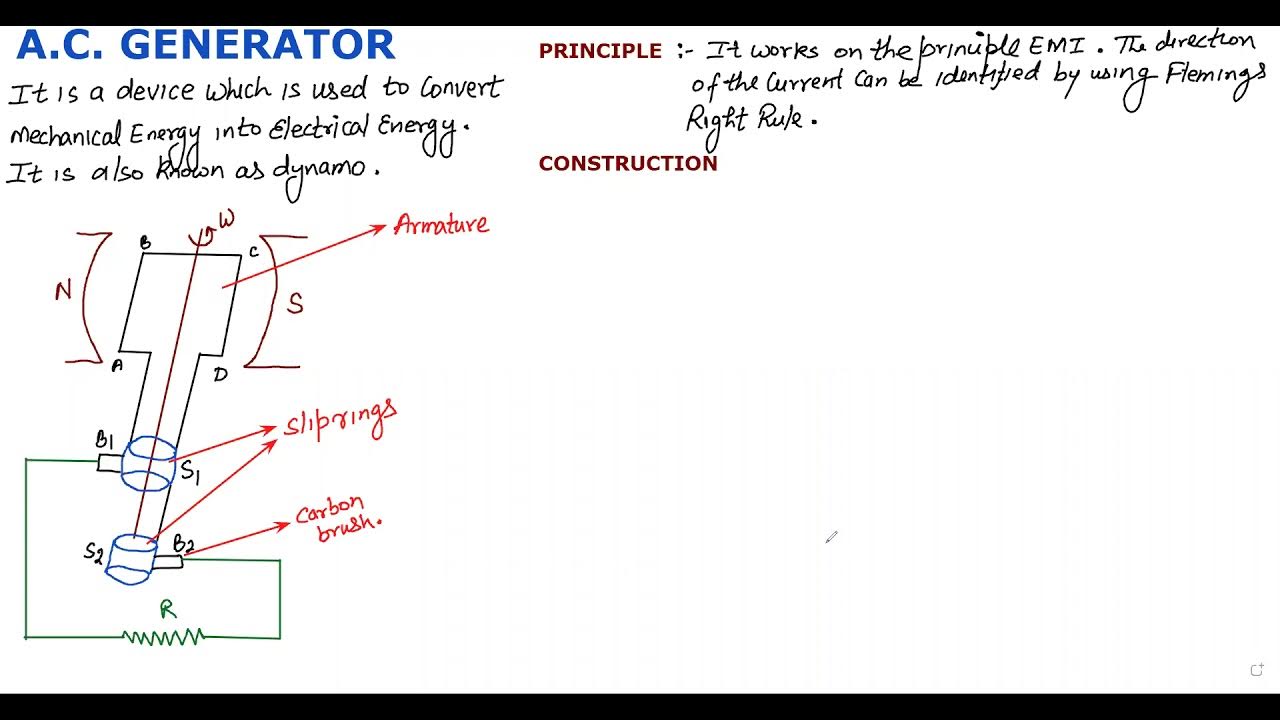 A.C. GENERATOR
It is a device which is used to Convert
Mechanical Energy into Electrical Energy.
It is also known as dynamo.
PRINCIPLE :- It works on the principle EMI. The direction
of the Current Can be identified by using Flemings
Right Rule.
CONSTRUCTION
W
Armature
B
C
N
S
A
D
Sliprings
B1
S1
Carbon
brush.
S2
B2
R